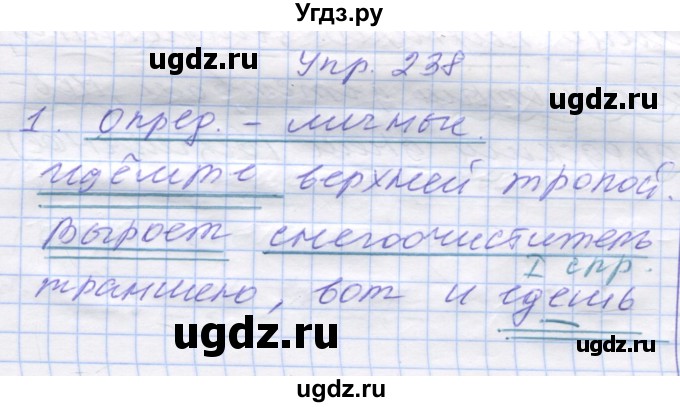 Угдз.ру
ugdz.ru
Упр. 238
ugdz.ru
1. опред. - личные.
идёмте верхней тропой.
Выроет снегоочиститель
I спр.
траншею, вот и едешь
ugdz.ru
ugdz.ru
ugdz.ru